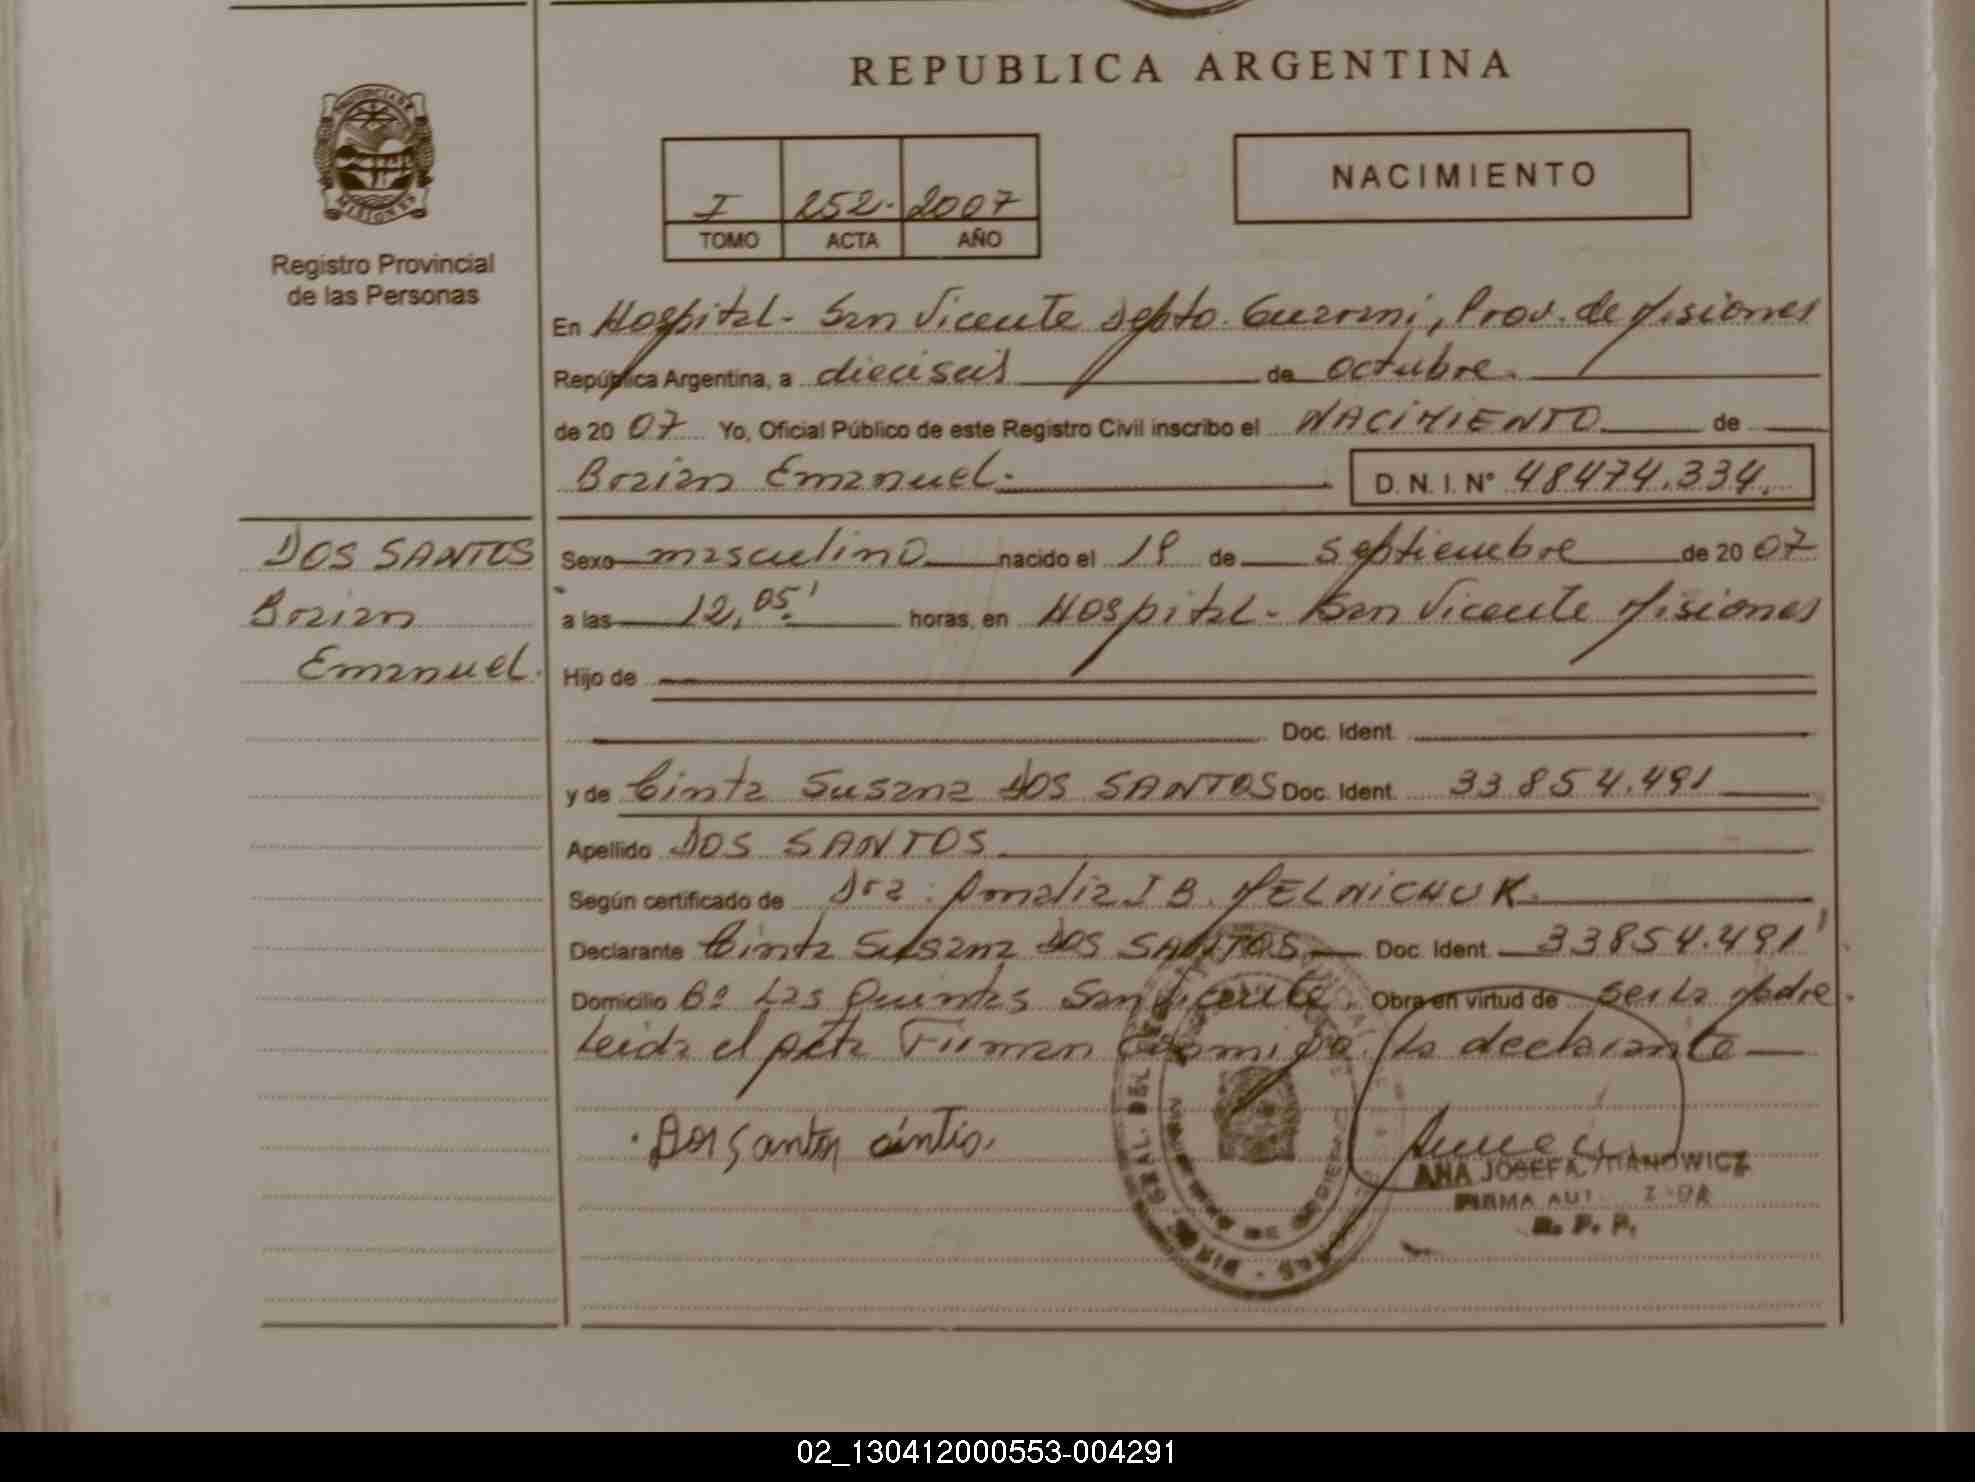 REPUBLICA ARGENTINA
PROVINCIA DE
MISIONES
Registro Provincial
de las Personas
I 252. 2007
TOMO ACTA AÑO
NACIMIENTO
En Hospital - San Vicente Depto. Guarani, Prov. de Misiones
República Argentina, a dieciseis de octubre.
de 2007 Yo, Oficial Público de este Registro Civil inscribo el NACIMIENTO de
Brian Emanuel. D. N. I. N° 48474.334.
DOS SANTOS
Brian
Emanuel.
Sexo masculino nacido el 19 de septiembre de 2007
a las 12,05' horas, en Hospital - San Vicente Misiones
Hijo de
Doc. Ident.
y de Cintia Susana DOS SANTOS Doc. Ident. 33854.491
Apellido DOS SANTOS
Según certificado de Dra. Amalia I B. MELNICHUK.
Declarante Cintia Susana DOS SANTOS Doc. Ident. 33854.491
Domicilio Bº Las Quintas San Vicente. Obra en virtud de ser la Madre.
Leida el acta Firman Conmigo. La declarante
Dos Santos cintia.
ANA JOSEFA
FIRMA
R. P. P.
02_130412000553-004291